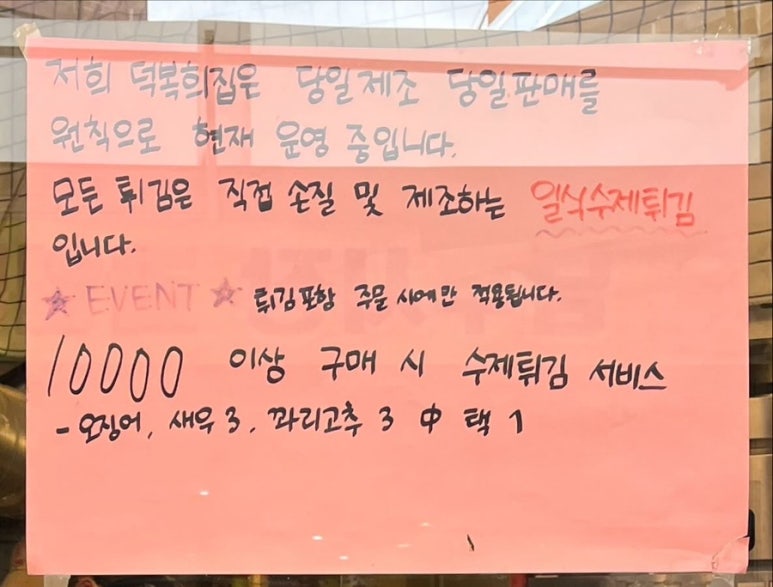 저희 덕복희집은 당일제조 당일판매를
원칙으로 현재 운영 중입니다.
모든 튀김은 직접 손질 및 제조하는 일식수제튀김
입니다.
☆ EVENT ☆ 튀김포함 주문 시에만 적용됩니다.
10000 이상 구매 시 수제튀김 서비스
- 오징어, 새우3, 꽈리고추 3 中 택 1